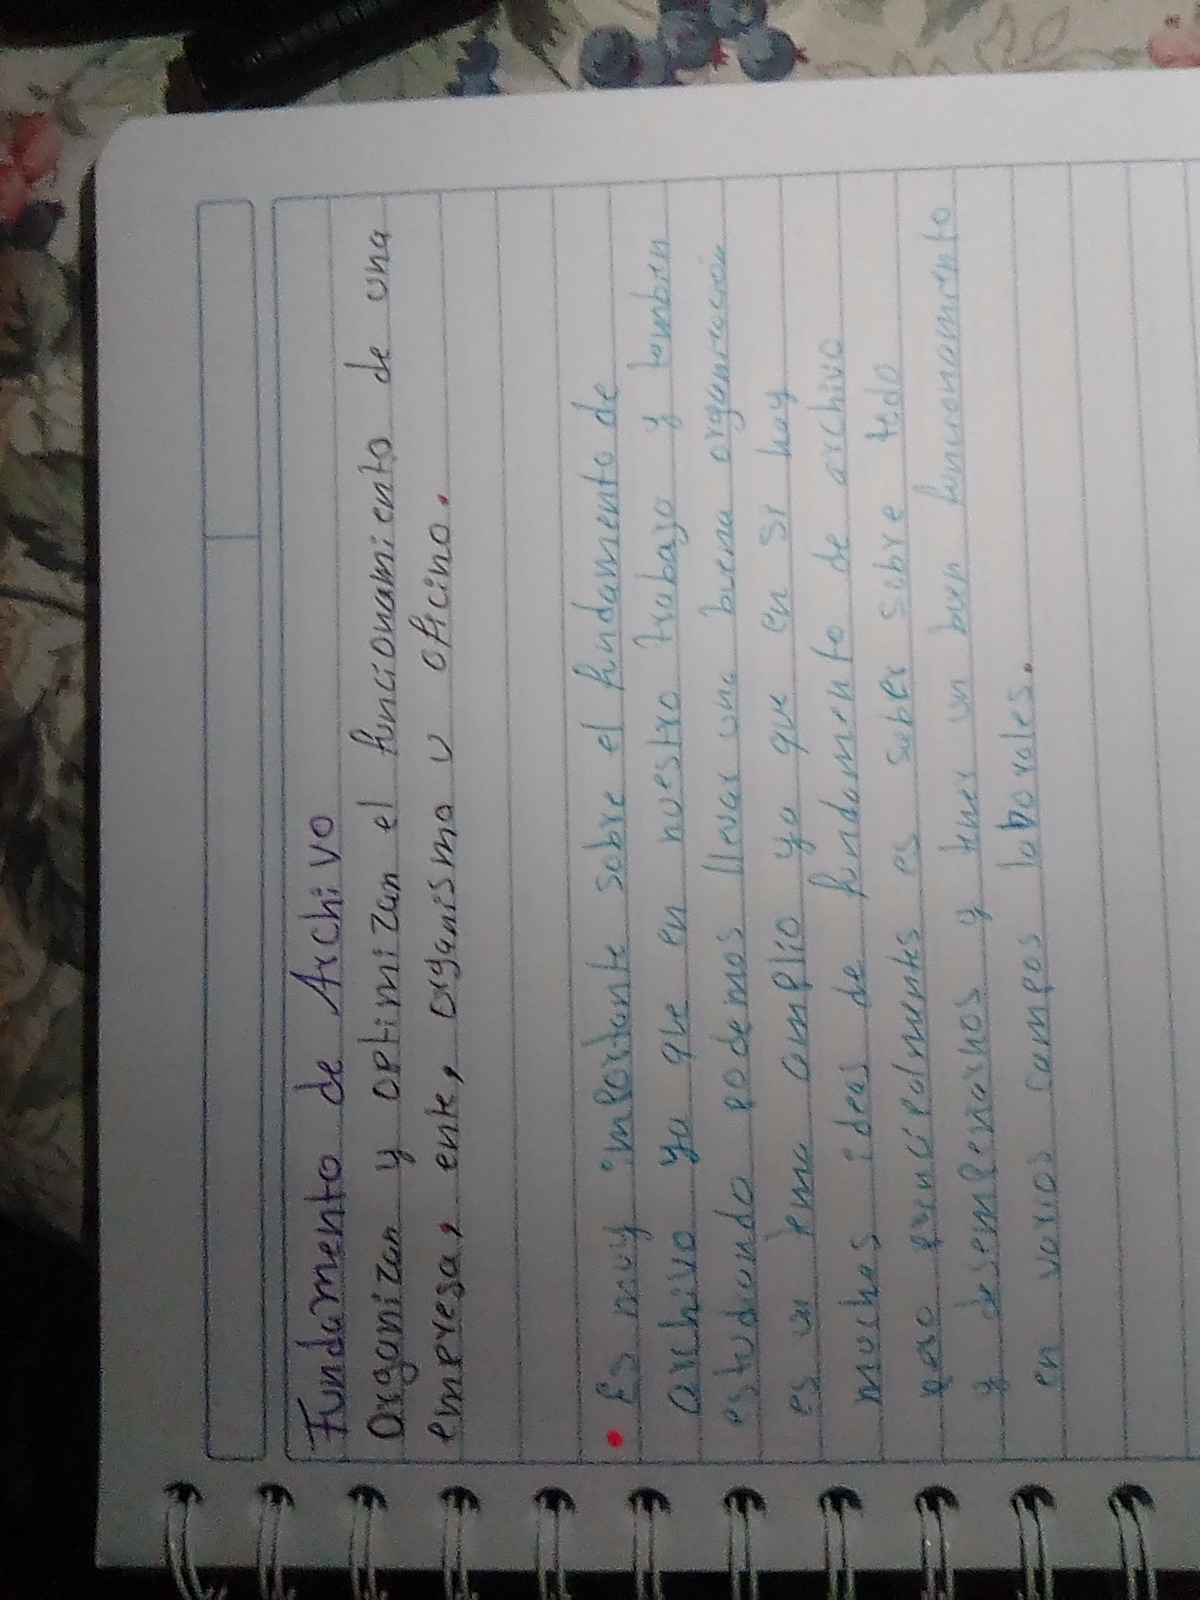 Fundamento de Archivo
Organizan y optimizan el funcionamiento de una
empresa, ente, organismo u oficina.
• Es muy importante sobre el fundamento de
archivo ya que en nuestro trabajo y tambien
estudiando podemos llevar una buena organización
es un tema amplio ya que en si hay
muchas ideas de fundamento de archivo
pero principalmentes es saber sobre todo
y desempeñarnos y tener un buen funcionamiento
en varios campos laborales.